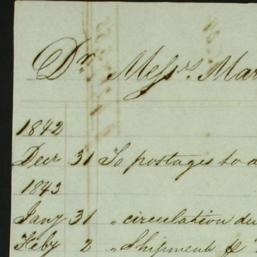 Dr. Messrs. Mar
1842
Decr 31 To postages to d
1843
Jany 31 " circulation du
Feby 2 " Shipment &